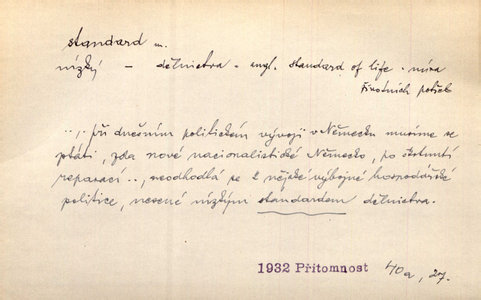 standard m.
nízký – dělnictva - angl. standard of life - míra
životních potřeb
..., při dnešním politickém vývoji v Německu musíme se
ptáti, zda nové nacionalistické Německo, po škrtnutí
reparací .., neodhodlá se k nějaké výbojné hospodářské
politice, nesené nízkým standardem dělnictva.
1932 Přítomnost 40a,